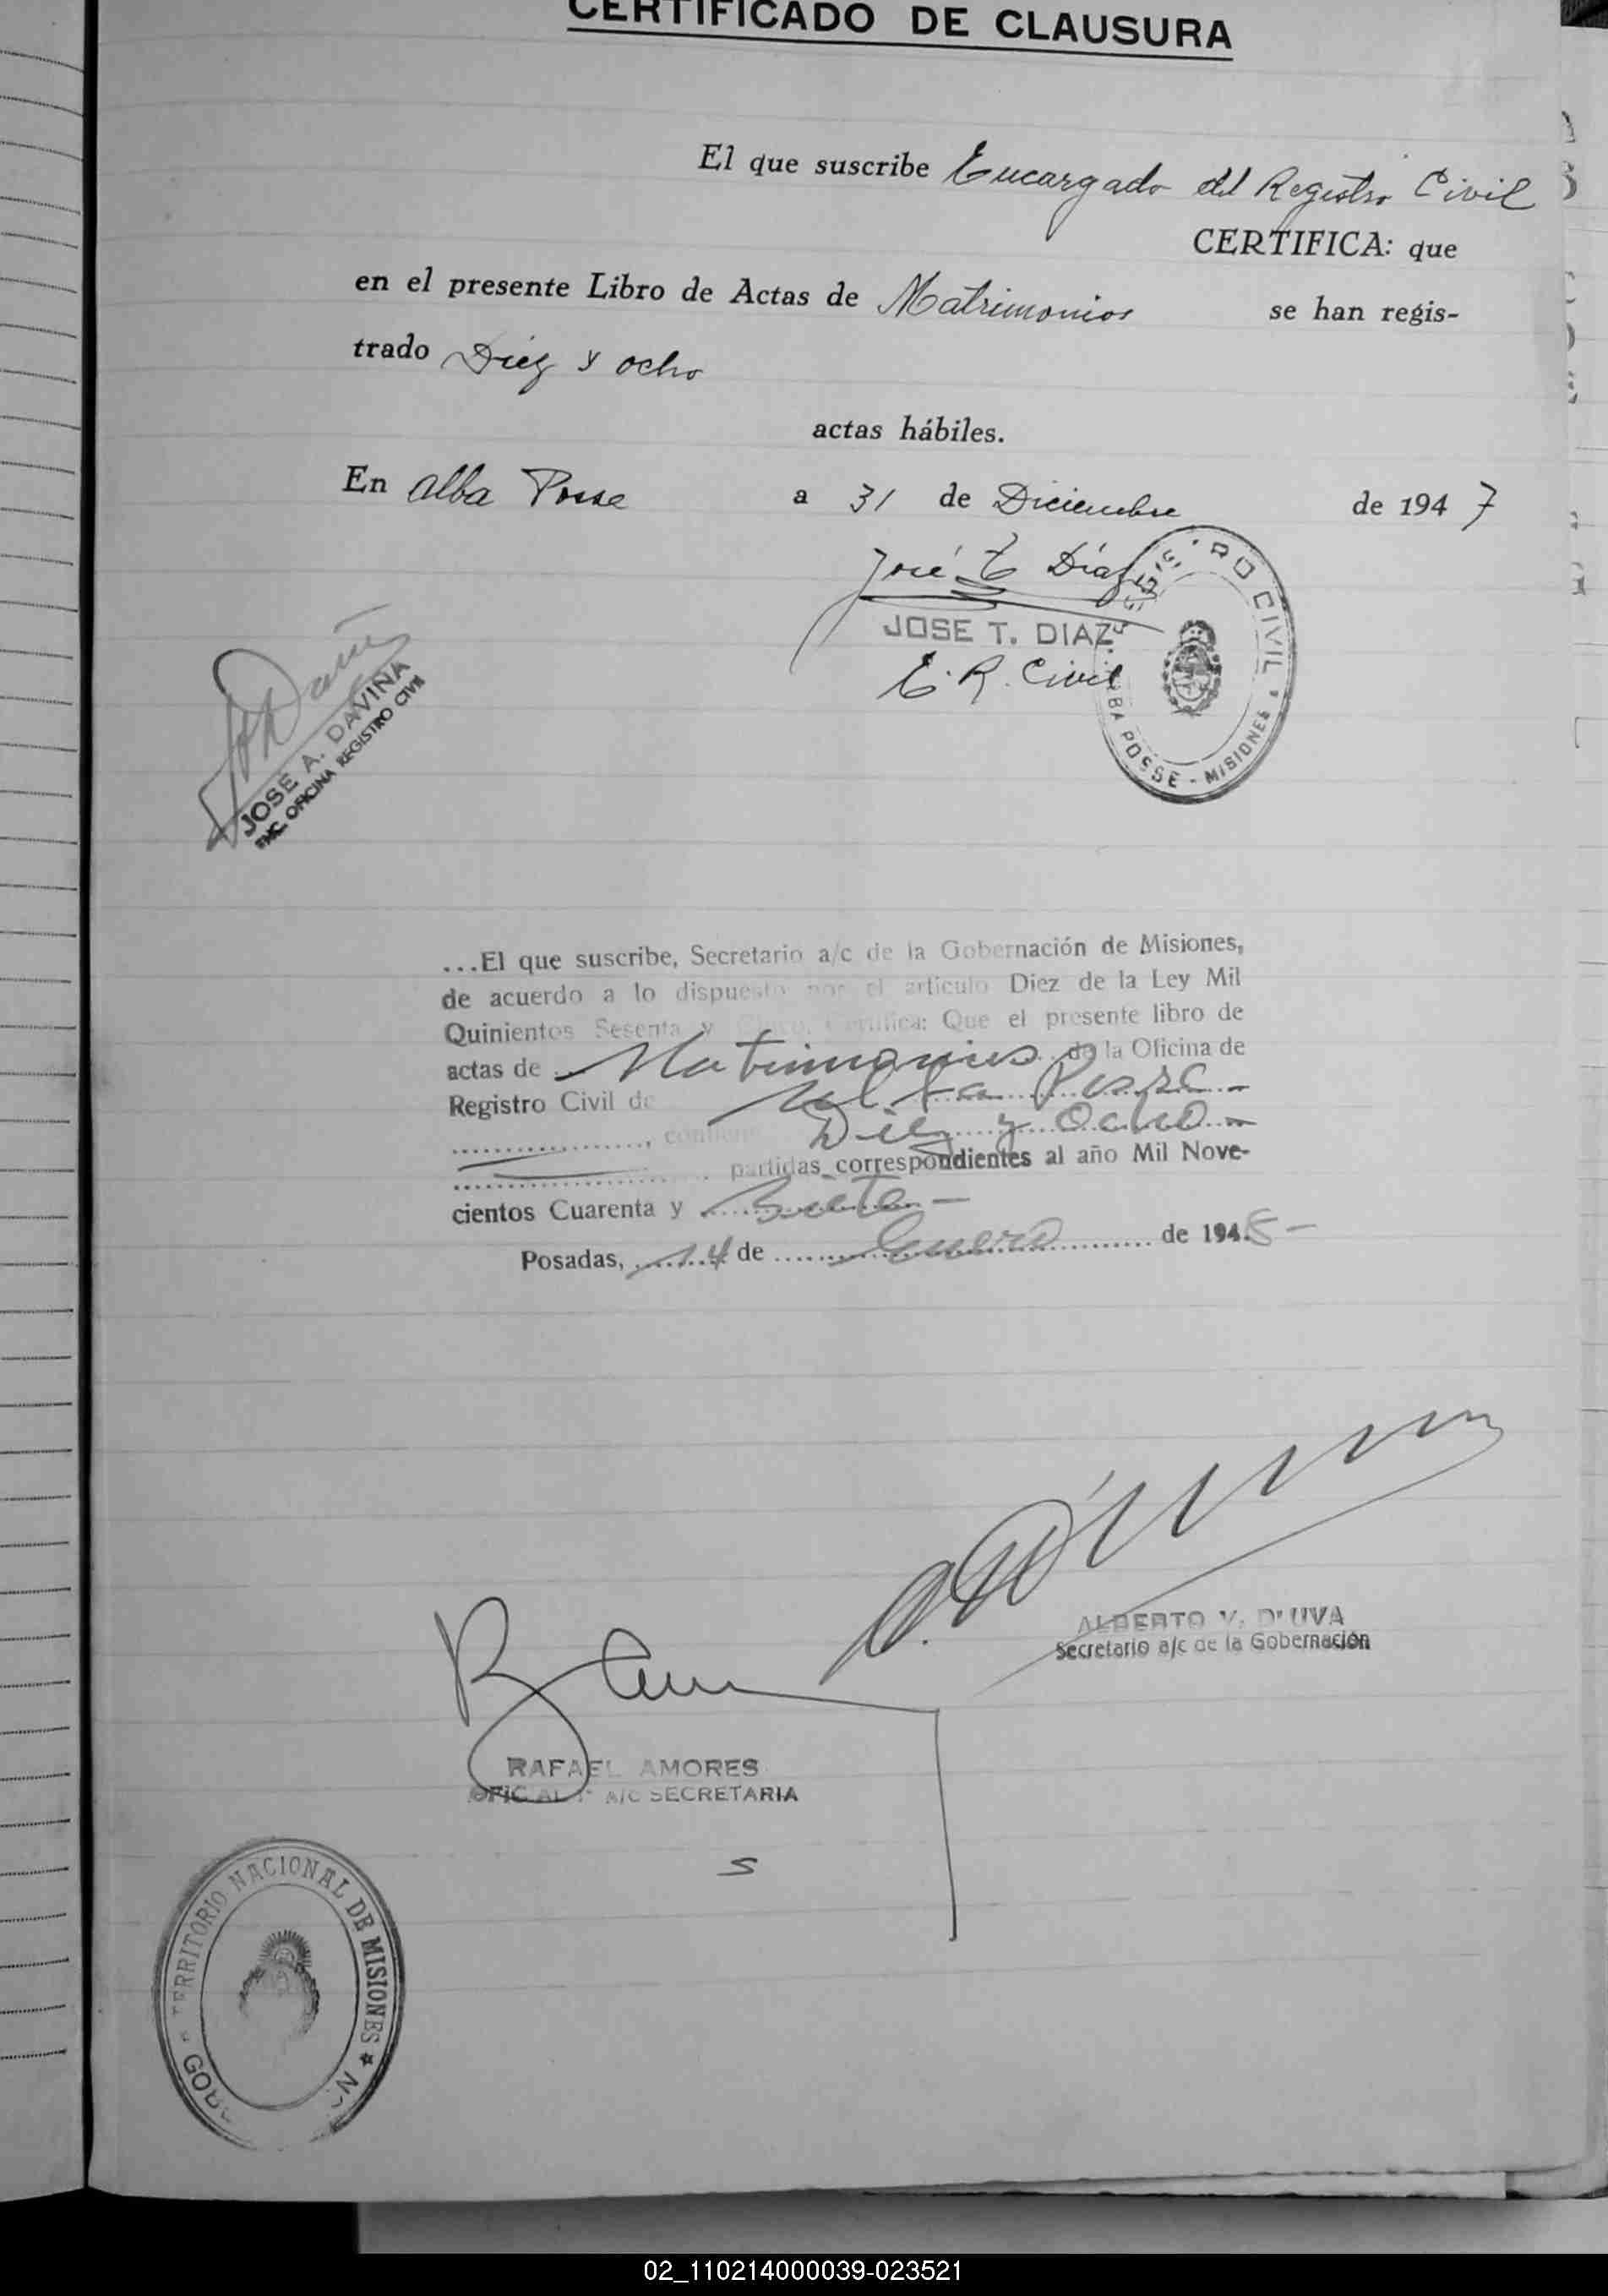 CERTIFICADO DE CLAUSURA
El que suscribe Encargado del Registro Civil
CERTIFICA: que
en el presente Libro de Actas de Matrimonios se han regis-
trado Diez y ocho
actas hábiles.
En Alba Posse a 31 de Diciembre de 1947
José T Díaz
JOSE T. DIAZ
E. R. Civil
REGISTRO CIVIL
ALBA POSSE - MISIONES
JOSÉ A. DAVIÑA
ENC. OFICINA REGISTRO CIVIL
...El que suscribe, Secretario a/c de la Gobernación de Misiones,
de acuerdo a lo dispuesto por el artículo Diez de la Ley Mil
Quinientos Sesenta y Cinco, Certifica: Que el presente libro de
actas de Matrimonios de la Oficina de
Registro Civil de Alba Posse
, contiene Diez y Ocho
partidas correspondientes al año Mil Nove-
cientos Cuarenta y Siete
Posadas, 14 de Enero de 1948
ALBERTO V. D'UVA
Secretario a/c de la Gobernación
RAFAEL AMORES
OFICIAL 1º A/C SECRETARIA
TERRITORIO NACIONAL DE MISIONES
02_110214000039-023521